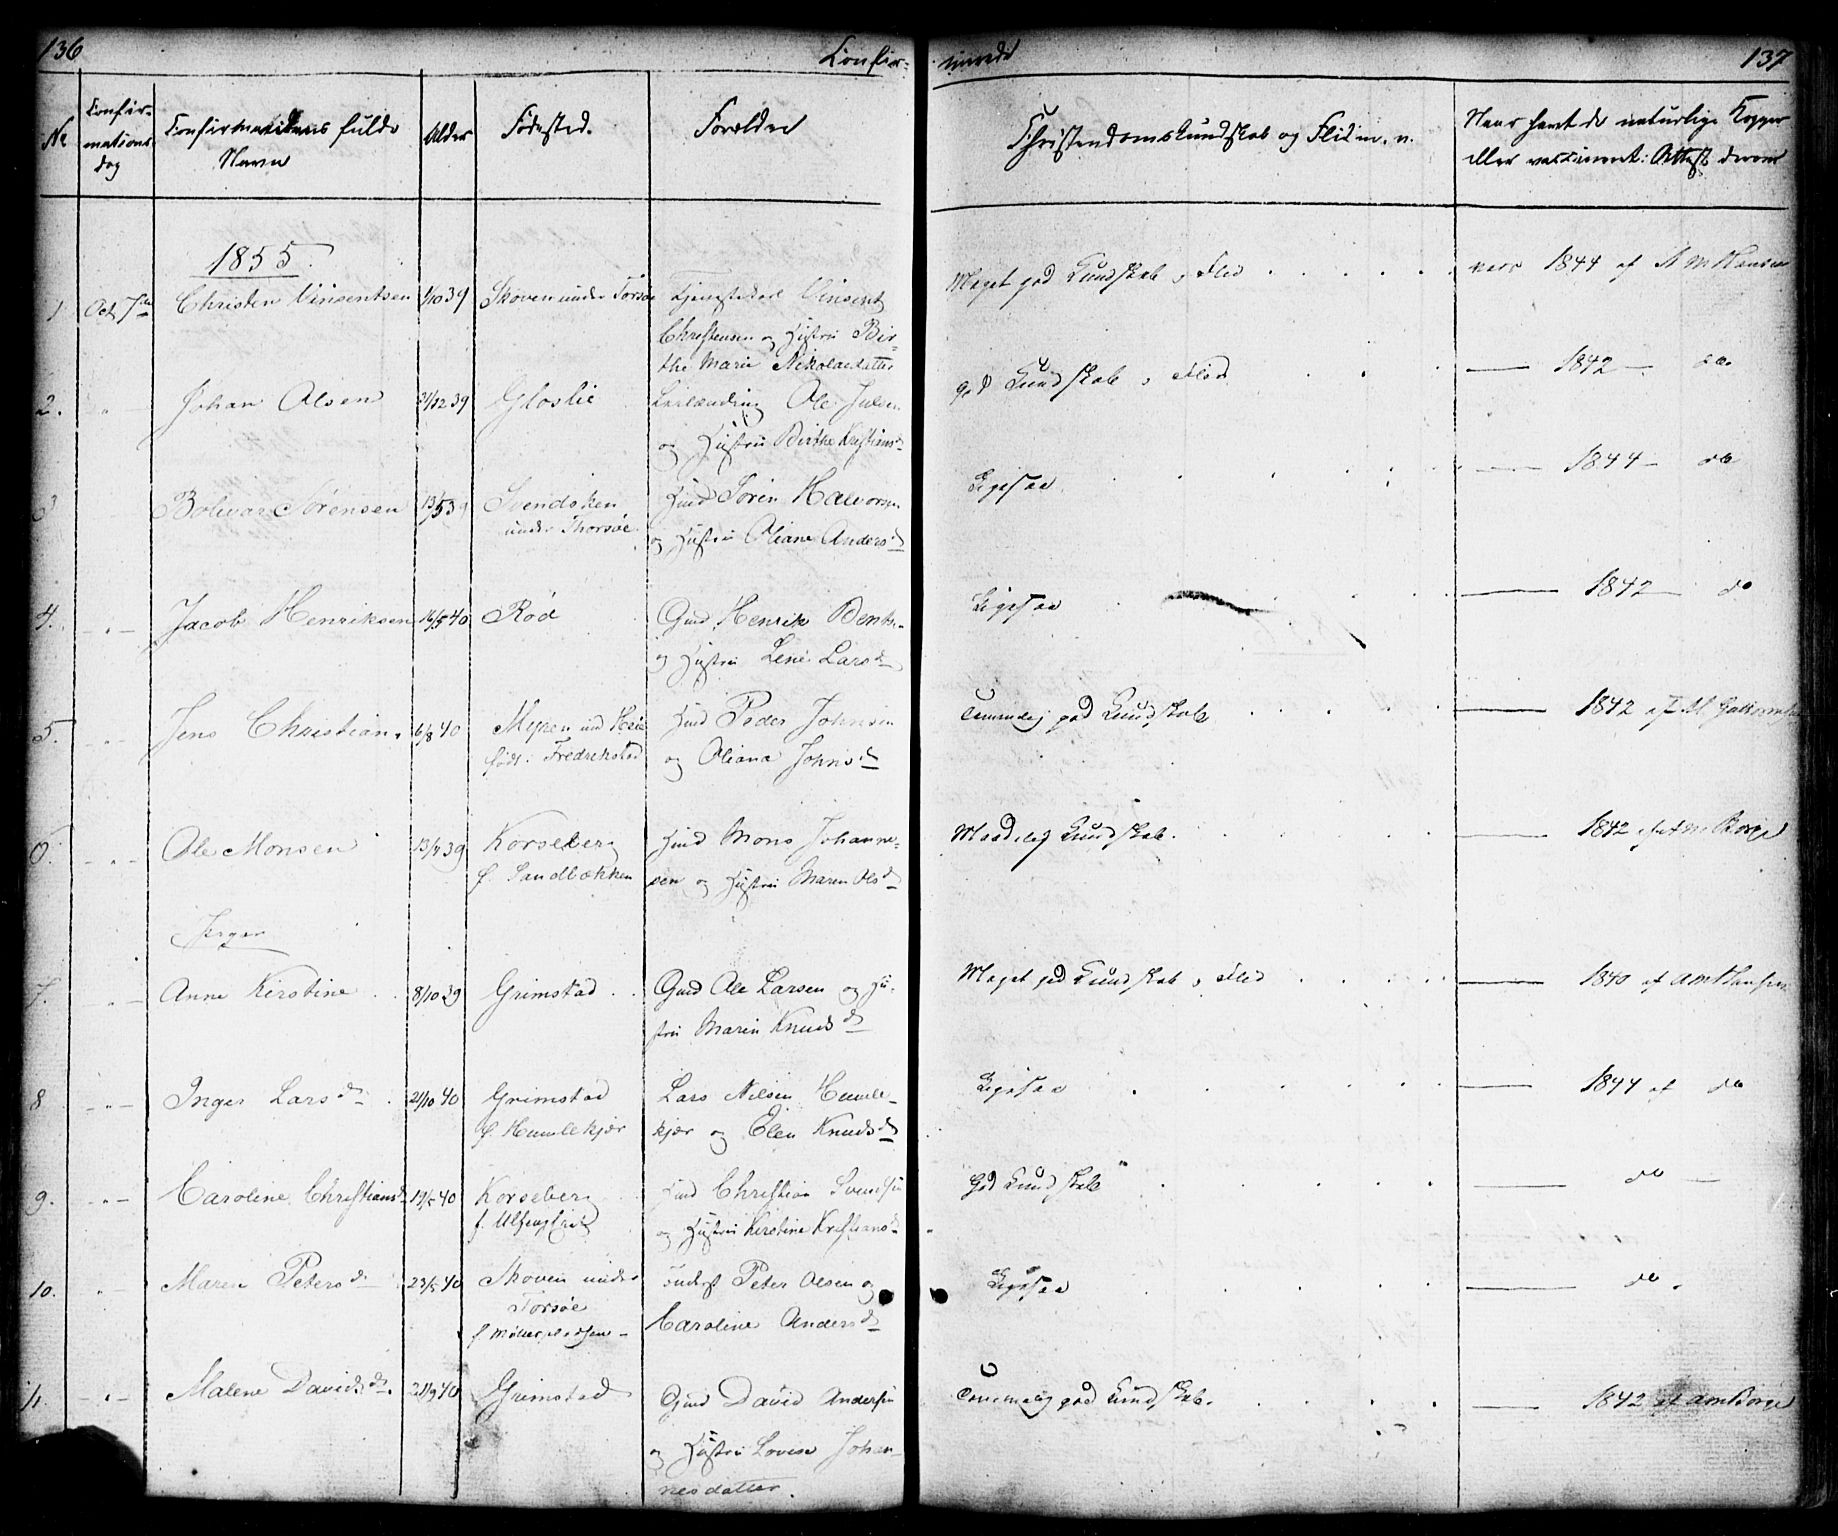 136
Confir-
merede
137
No
Confir-
mations
dag
Confirmandens fulde
Navn
Alder
Fødested.
Forældre
Christendomskundskab og Flid m. v.
Naar havt de naturlige Kopper
eller vaccineret: Attest derom
1855.
1 Oct 7de Christen Vinsentsen 1/10 39 Skoven under Torsøe Vinsent
Christensen og Hustru Bir-
the Marie Nikolaidatter
Meget god Kundskab, Flid 1844 af A M Hansen
2. " Johan Olsen 31/12 39 Gloslie Ole Julsen
og Hustru Birthe Kristiansd
God Kundskab, Flid 1842 do
3 Bolivar Sørensen 13/5 39 Svendsken Sørin Halvorsen
under Thorsøe og Hustru Oliane Andersd
Ligesaa 1844 do
4. " Jacob Henriksen 16/5 40 Rød Gmd Henrik Bents.
og Hustru Lene Larsd
Ligesaa 1842 do
5. " Jens Christian. 6/8 40 Myren Peder Johnsen
født: Fredrekstad og Oliana Johnsd
Temmelig god Kundskab 1842 af
6. " Ole Monsen 13/7 39 Korseberg Mons Johanne-
f. Sandbækken sen og Hustru Maren Olsd
Maadelig Kundskab. 1842 af Borge
Piger
7. " Anne Kirstine 8/10 39 Grimstad Gmd Ole Larsen og Hu-
stru Maren Knudsd
Meget god Kundskab, Flid 1840 af A M Hansen
8 " Inger Larsd 21/10 40 Grimstad Lars Nilsen Humle-
f. Humlekjær kjær og Elen Knudsd
Ligesaa 1844 af do
9. " Caroline Christiansd 19/5 40 Korseberg Christian Svendsen
og Hustru Kirstine Kristiansd
God Kundskab do
10. " Maren Petersd 23/5 40 Skoven under Peter Olsen og
Torsøe Caroline Andersd
f. Møllerpladsen
Ligesaa do
11. " Malene Davidsd. 21/9 40 Grimstad Gmd David Andersen
og Hustru Lovise Johan-
nesdatter.
Temmelig god Kundskab. 1842 af Borge